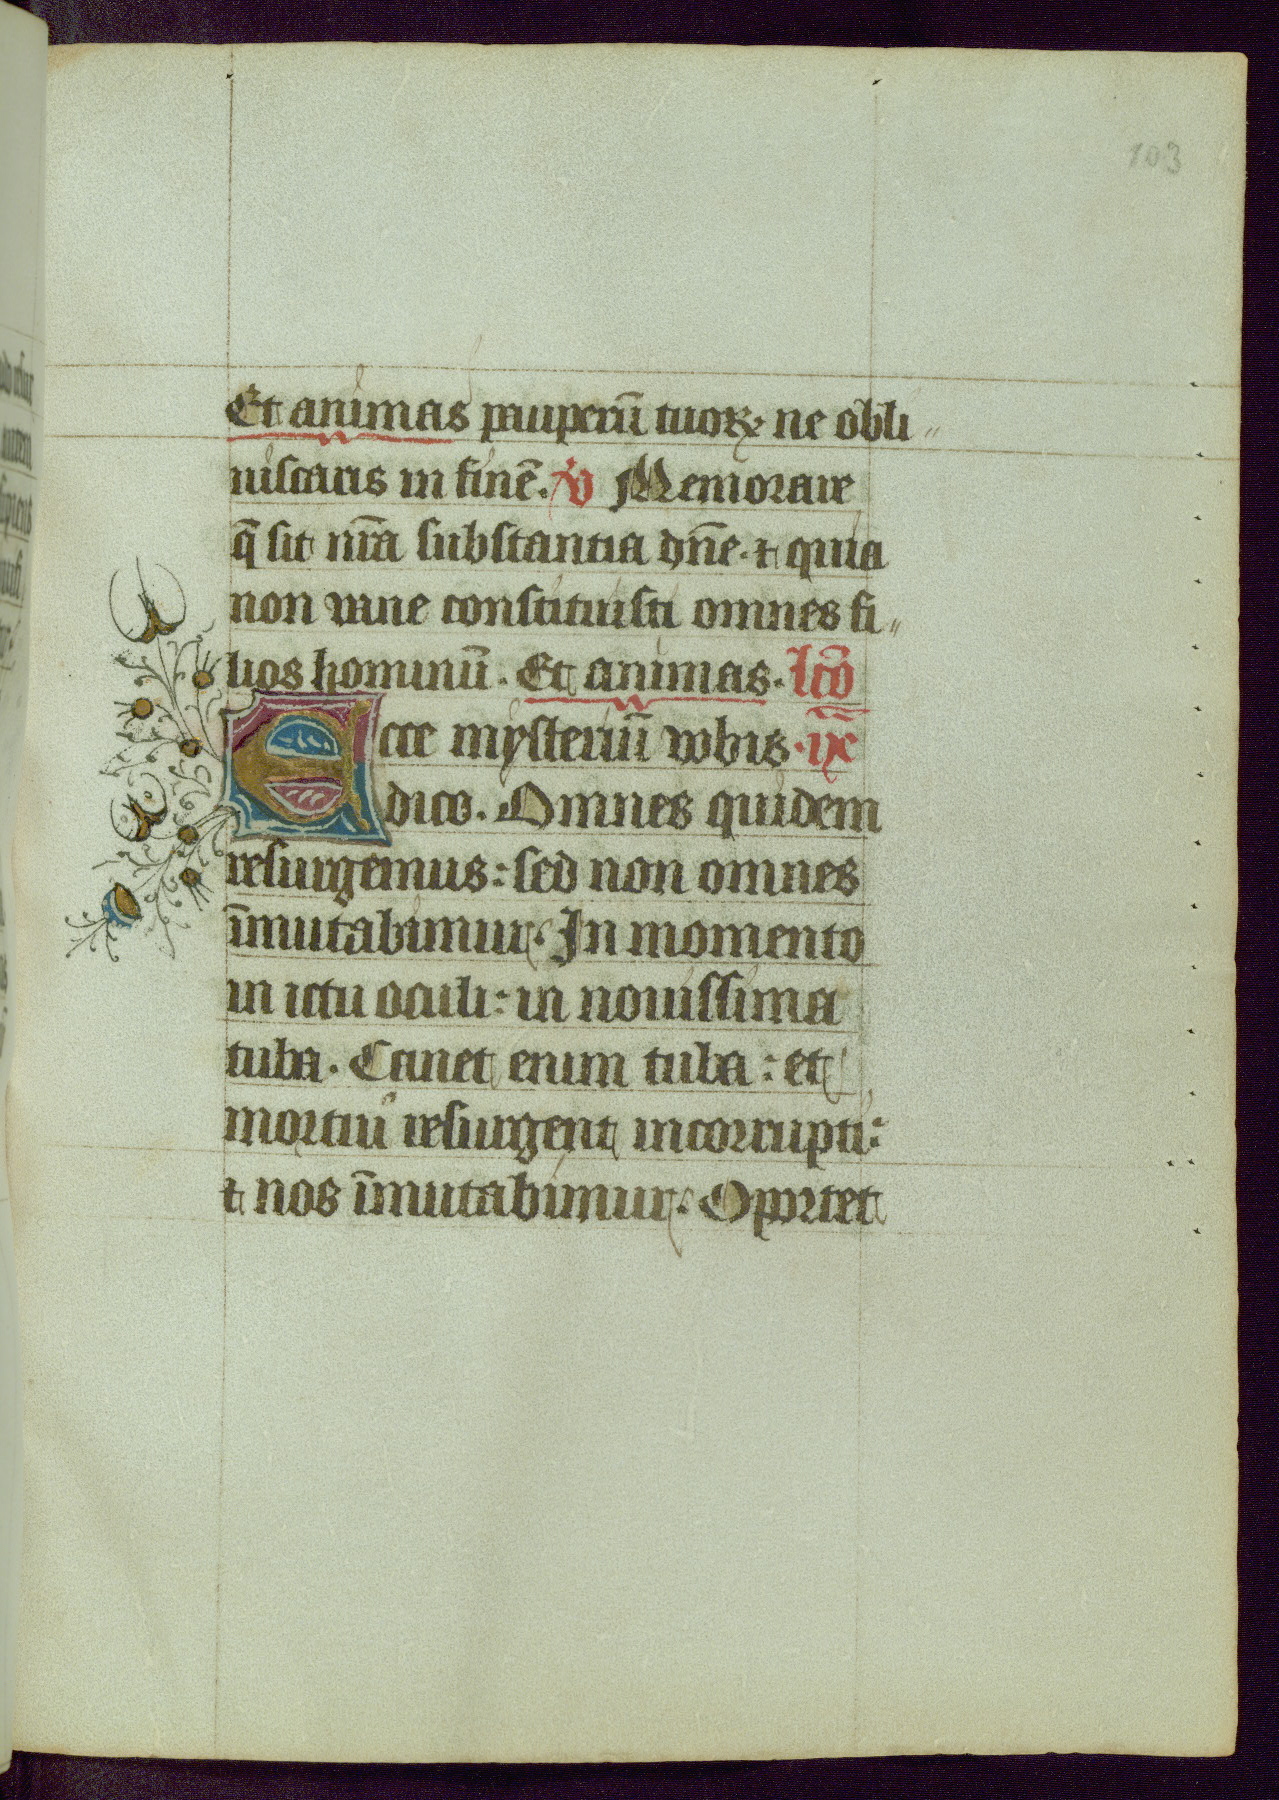 103
Et animas pauperū tuoꝝ ne obli
uiscaris in finē. V̇ Memorare
q̄ sit nr̄a substantia dn̄e. ⁊ quia
non uane constituisti omnes fi
lios hominū. Et animas. lc̄o
Ecce mysteriū vobis .ix
dico. Omnes quidem
resurgemus: sed non omnes
īmutabimur. In momento
in ictu oculi: in nouissima
tuba. Canet enim tuba: et
mortui resurgent incorrupti:
⁊ nos īmutabimur. Oportet